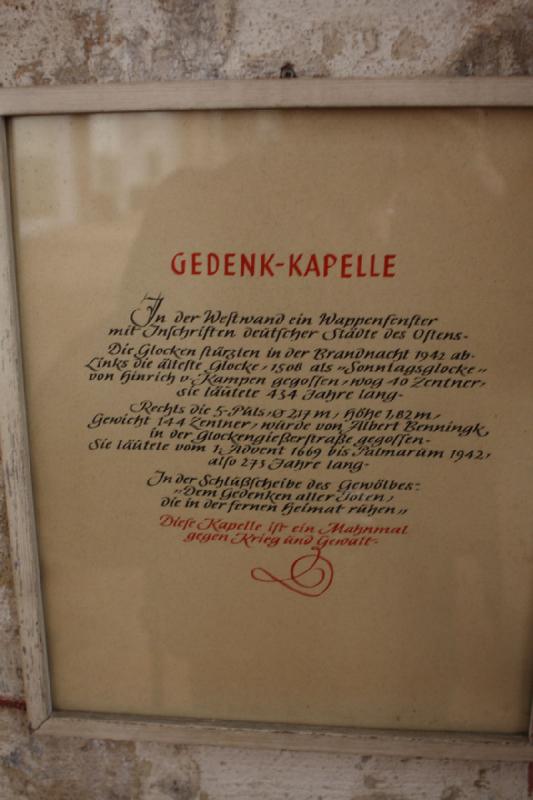 GEDENK-KAPELLE
In der Westwand ein Wappenfenster
mit Inschriften deutscher Städte des Ostens-
Die Glocken stürzten in der Brandnacht 1942 ab-
Links die älteste Glocke, 1508 als „Sonntagsglocke"
von Hinrich v. Kampen gegossen, wog 40 Zentner,
sie läutete 434 Jahre lang-
Rechts die 5-Puls, Ø 2,17 m, Höhe 1,82 m,
Gewicht 144 Zentner, wurde von Albert Benningk,
in der Glockengießerstraße gegossen-
Sie läutete vom 1. Advent 1669 bis Palmarum 1942,
also 273 Jahre lang-
In der Schlußscheibe des Gewölbes:
„Dem Gedenken aller Toten,
die in der fernen Heimat ruhen"
Diese Kapelle ist ein Mahnmal
gegen Krieg und Gewalt-